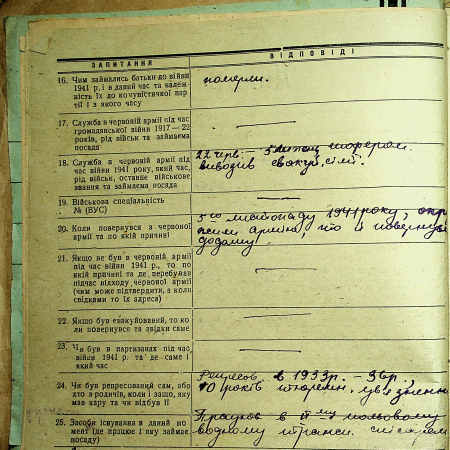 ЗАПИТАННЯ
ВІДПОВІДІ
16. Чим займались батьки до війни
1941 р. і в даний час та належ-
ність їх до комуністичної пар-
тії і з якого часу
померли.
17. Служба в червоній армії під час
громадянської війни 1917—22
років, рід військ та займаєма
посада
18. Служба в червоній армії під
час війни 1941 року, який час,
рід військ, останнє військове
звання та займаєма посада
22 черв. — 5 шофером
вивозив
19. Військова спеціальність
№ (ВУС)
20. Коли повернувся з червоної
армії та по якій причині
5го листопаду 1941 року,
армію, що й повернув
додому.
21. Якщо не був в червоній армії
під час війни 1941 р., то по
якій причині та де перебував
підчас відходу червоної армії
(чим може підтвердити, а коли
свідками то їх адреса)
22. Якщо був евакуйований, то ко
ли повернувся та звідки саме
23. Чи був в партизанах під час
війни 1941 р. та де саме і
який час
24. Чи був репресований сам, або
хто з родичів, коли і защо, яку
мав кару та чи відбув її
Репресов. в 1933р. —
10 років
25. Засоби існування в даний мо
мент (де працює і яку займає
посаду)
Працюю в
водному слюсарем